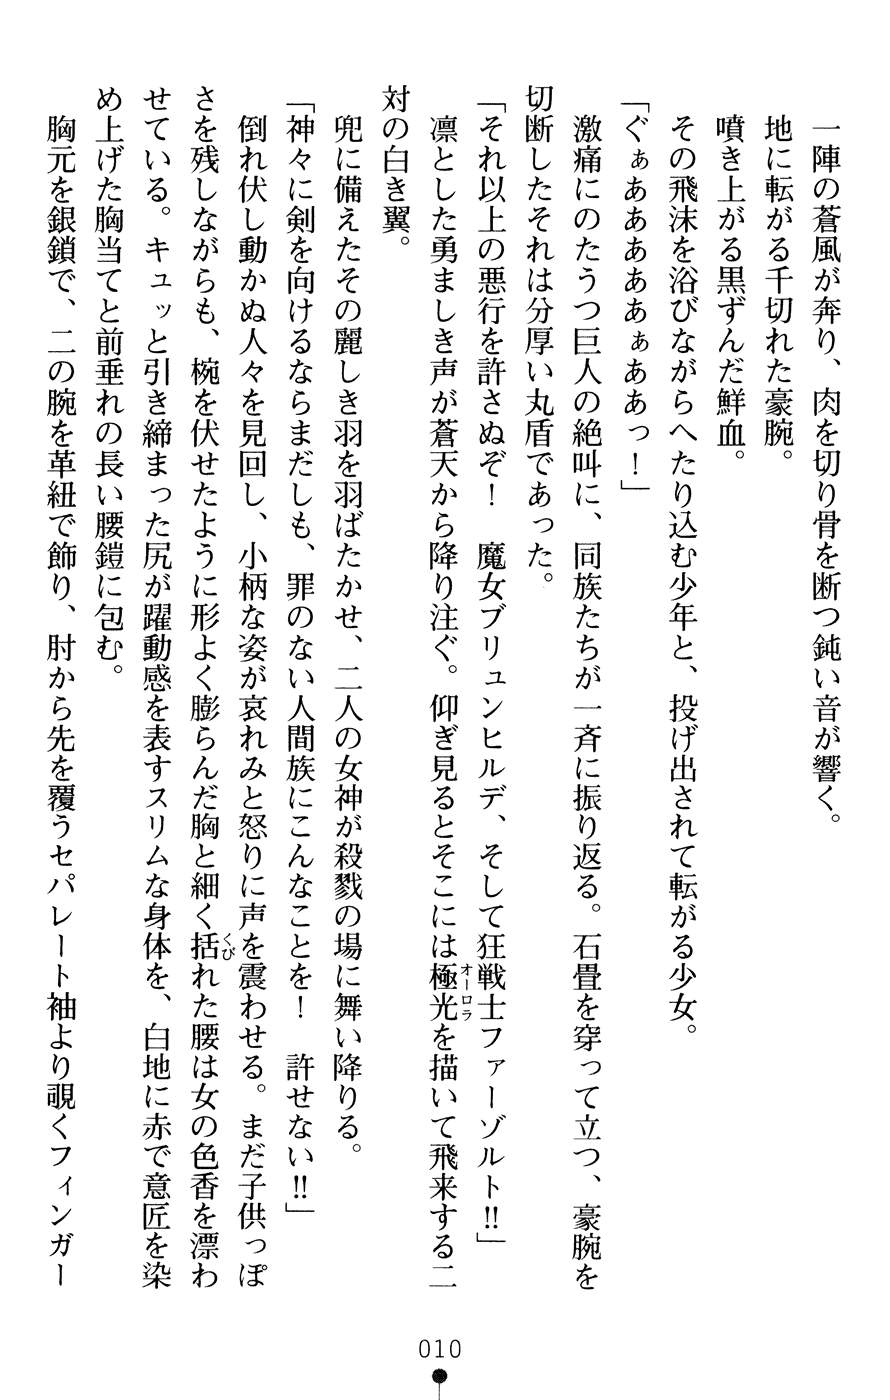 一陣の蒼風が奔り、肉を切り骨を断つ鈍い音が響く。
地に転がる千切れた豪腕。
噴き上がる黒ずんだ鮮血。
その飛沫を浴びながらへたり込む少年と、投げ出されて転がる少女。
「ぐぁああああああぁああっ！」
激痛にのたうつ巨人の絶叫に、同族たちが一斉に振り返る。石畳を穿って立つ、豪腕を
切断したそれは分厚い丸盾であった。
「それ以上の悪行を許さぬぞ！　魔女ブリュンヒルデ、そして狂戦士ファーゾルト!!」
凛とした勇ましき声が蒼天から降り注ぐ。仰ぎ見るとそこには極光オーロラを描いて飛来する二
対の白き翼。
兜に備えたその麗しき羽を羽ばたかせ、二人の女神が殺戮の場に舞い降りる。
「神々に剣を向けるならまだしも、罪のない人間族にこんなことを！　許せない!!」
倒れ伏し動かぬ人々を見回し、小柄な姿が哀れみと怒りに声を震わせる。まだ子供っぽ
さを残しながらも、椀を伏せたように形よく膨らんだ胸と細く括くびれた腰は女の色香を漂わ
せている。キュッと引き締まった尻が躍動感を表すスリムな身体を、白地に赤で意匠を染
め上げた胸当てと前垂れの長い腰鎧に包む。
胸元を銀鎖で、二の腕を革紐で飾り、肘から先を覆うセパレート袖より覗くフィンガー
010